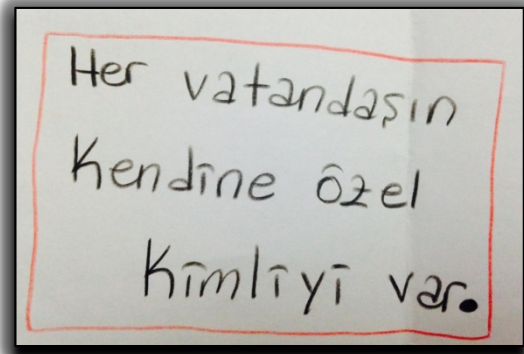 Her vatandaşın
Kendine özel
Kimliyi var.